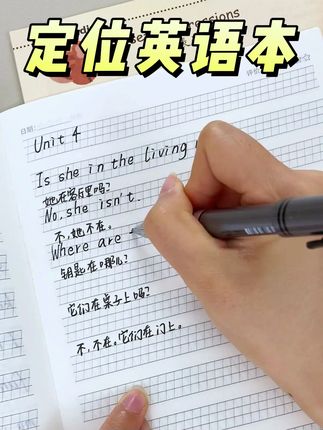 定位英语本
日期:
Unit 4
Is she in the living
她在客厅里吗?
No, she isn't.
不,她不在。
Where are
钥匙在哪儿?
它们在桌子上吗?
不,不在。它们在门上。